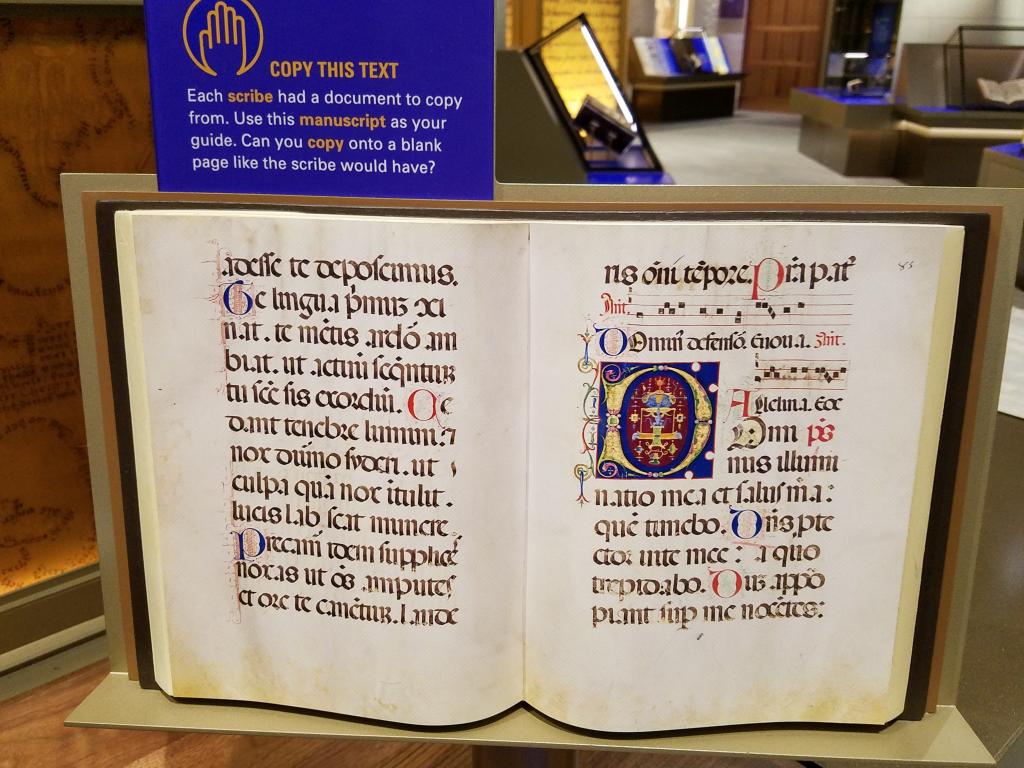 COPY THIS TEXT
Each scribe had a document to copy
from. Use this manuscript as your
guide. Can you copy onto a blank
page like the scribe would have?
adesse te deposcimus.
Te lingua p̄mus xi
nat. te mētis ardō am
biat. ut actuū seq̄ntiū
tu scē sis exordiū. Ce
dant tenebre lumini. ⁊
nox diuino syderi. ut
culpa quā nox ītulit.
lucis lab̄scat munere.
Precam̄ idem supplices
noxas ut ōs amputes
et ore te canētiū. laude
ris ōni tēpore. P̄ria p. at̄
Ant.
Domin̄ defensō. Euoua. Ant.
Alleluia. Eoe
Dnn ps
nus illumi
natio mea et salus m̄a:
quē timebo. Dn̄s pte
ctor uite mee: a quo
trepidabo. Dū appō
piant sup me nocētes: